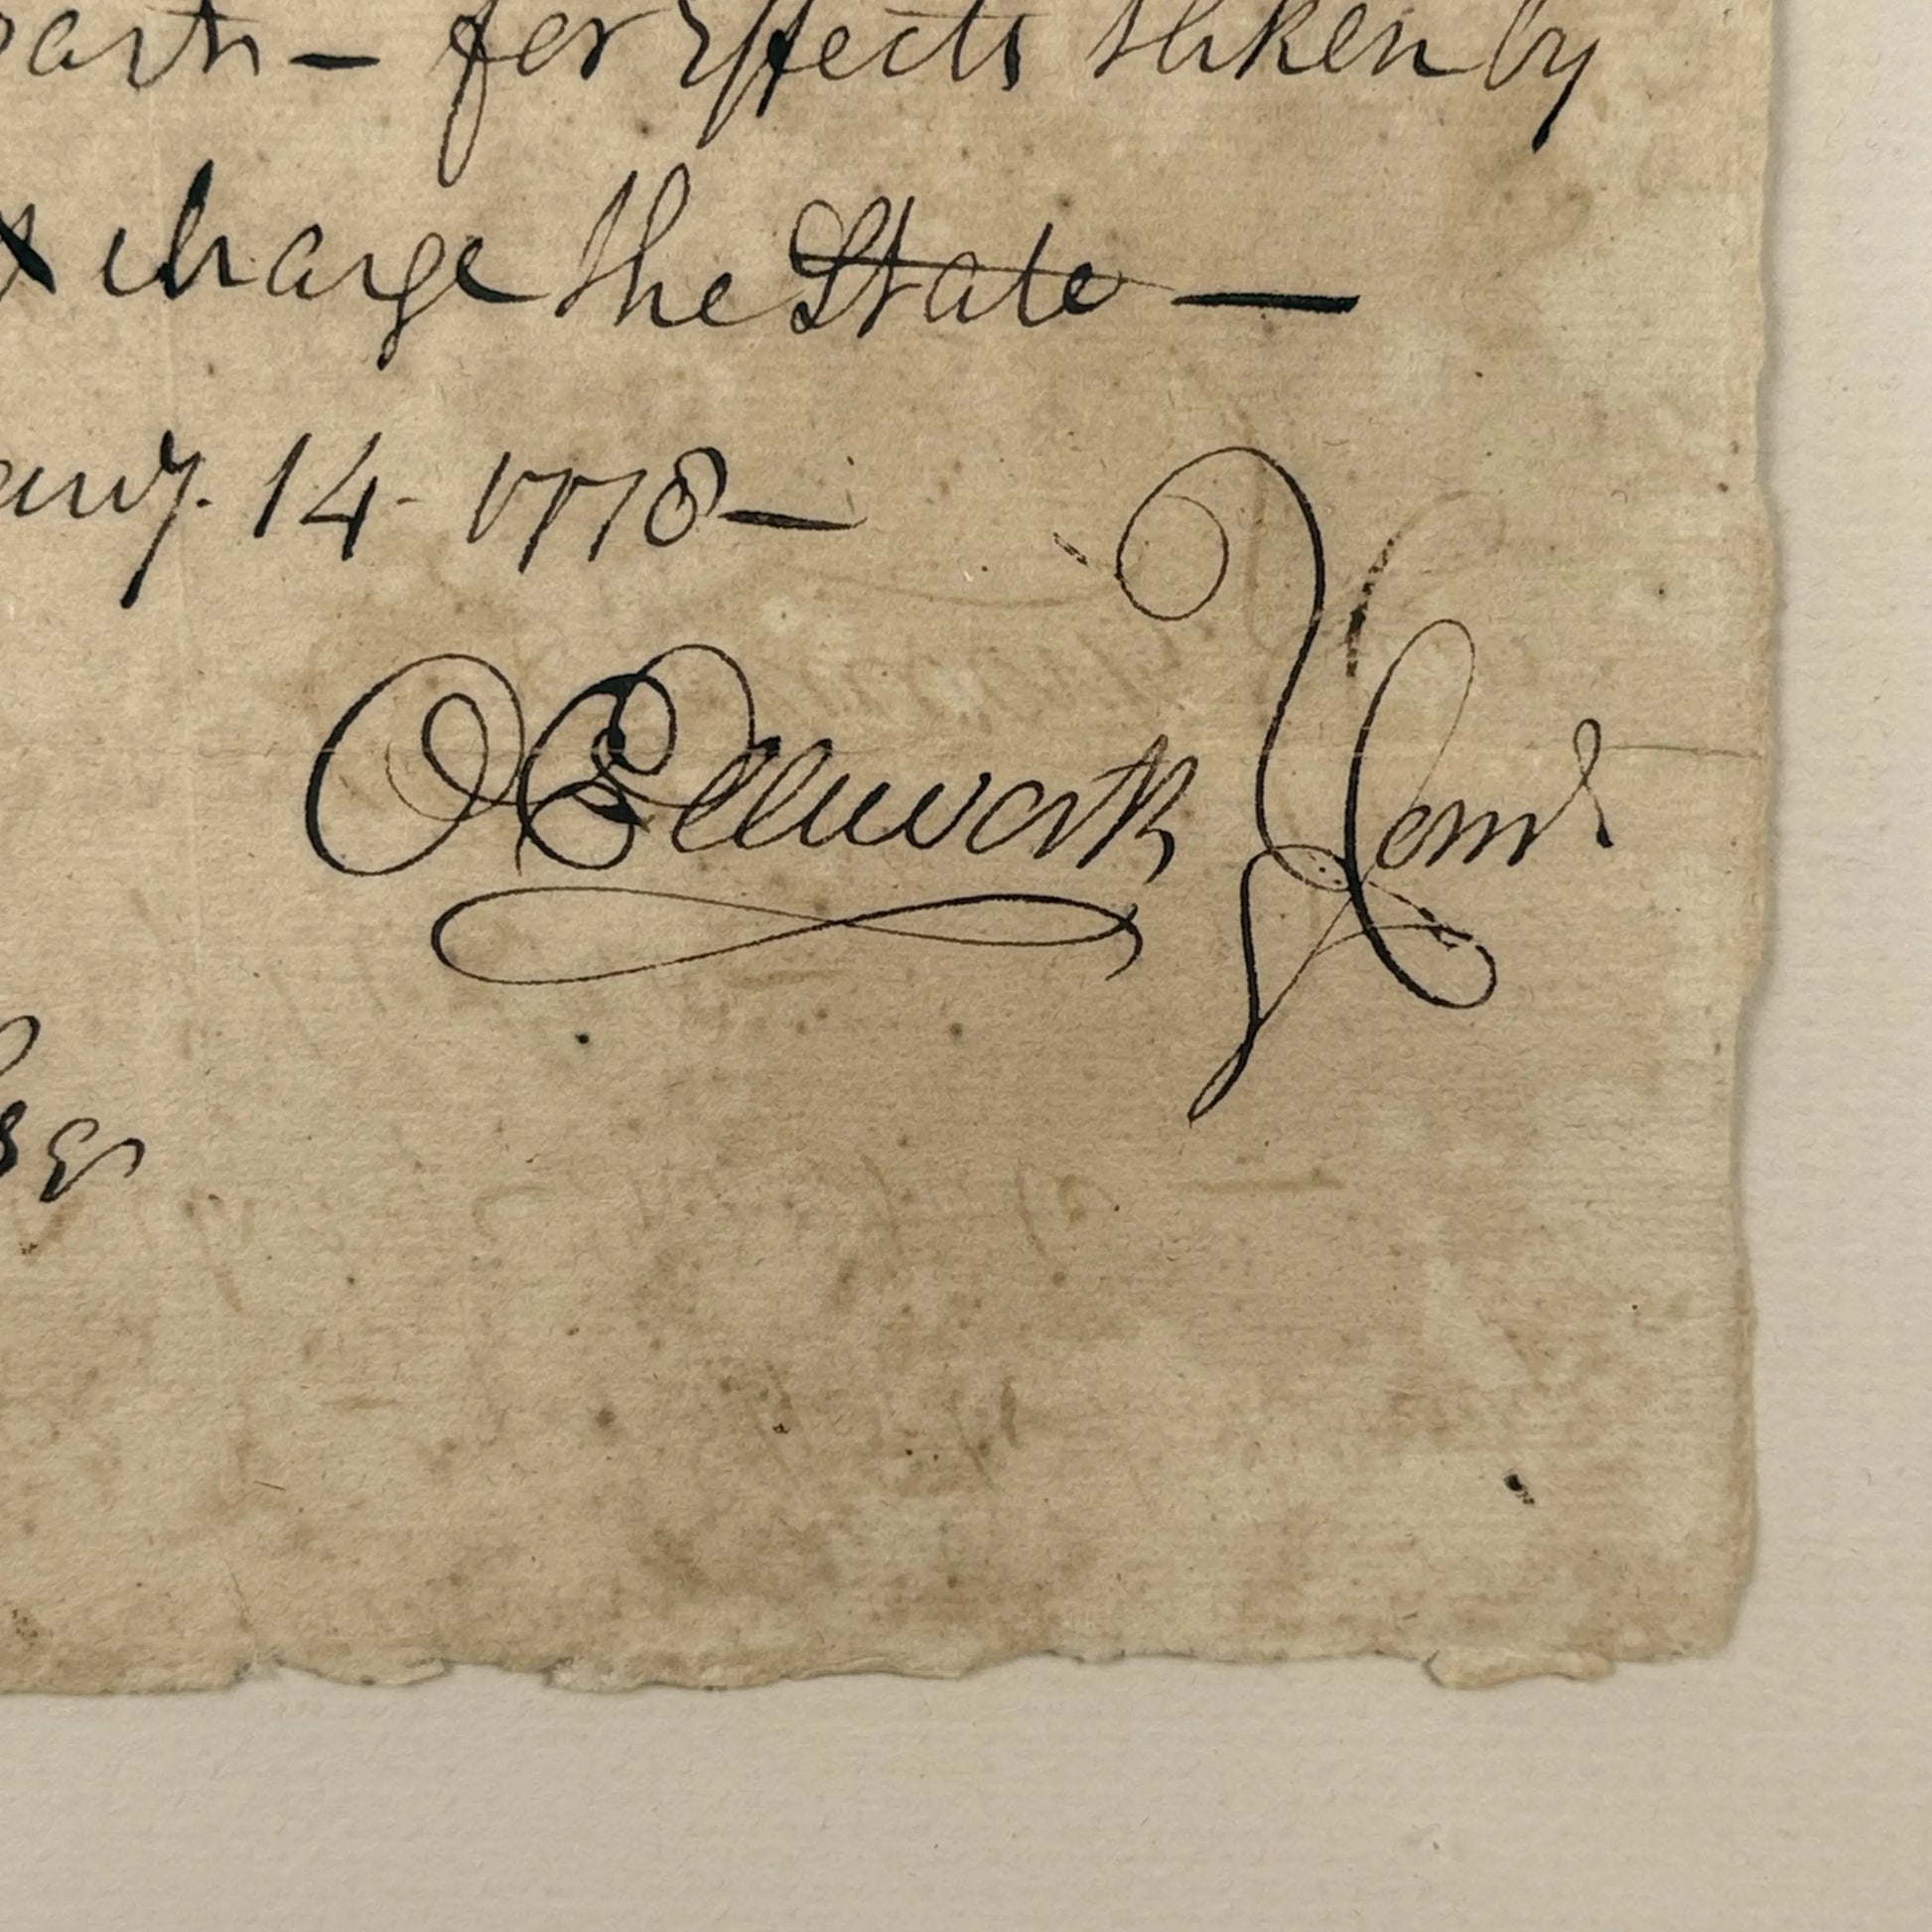 parts — for Effects taken by
& charge the State —
any. 14. 1778 —
O Ellsworth } Comt
Esqr